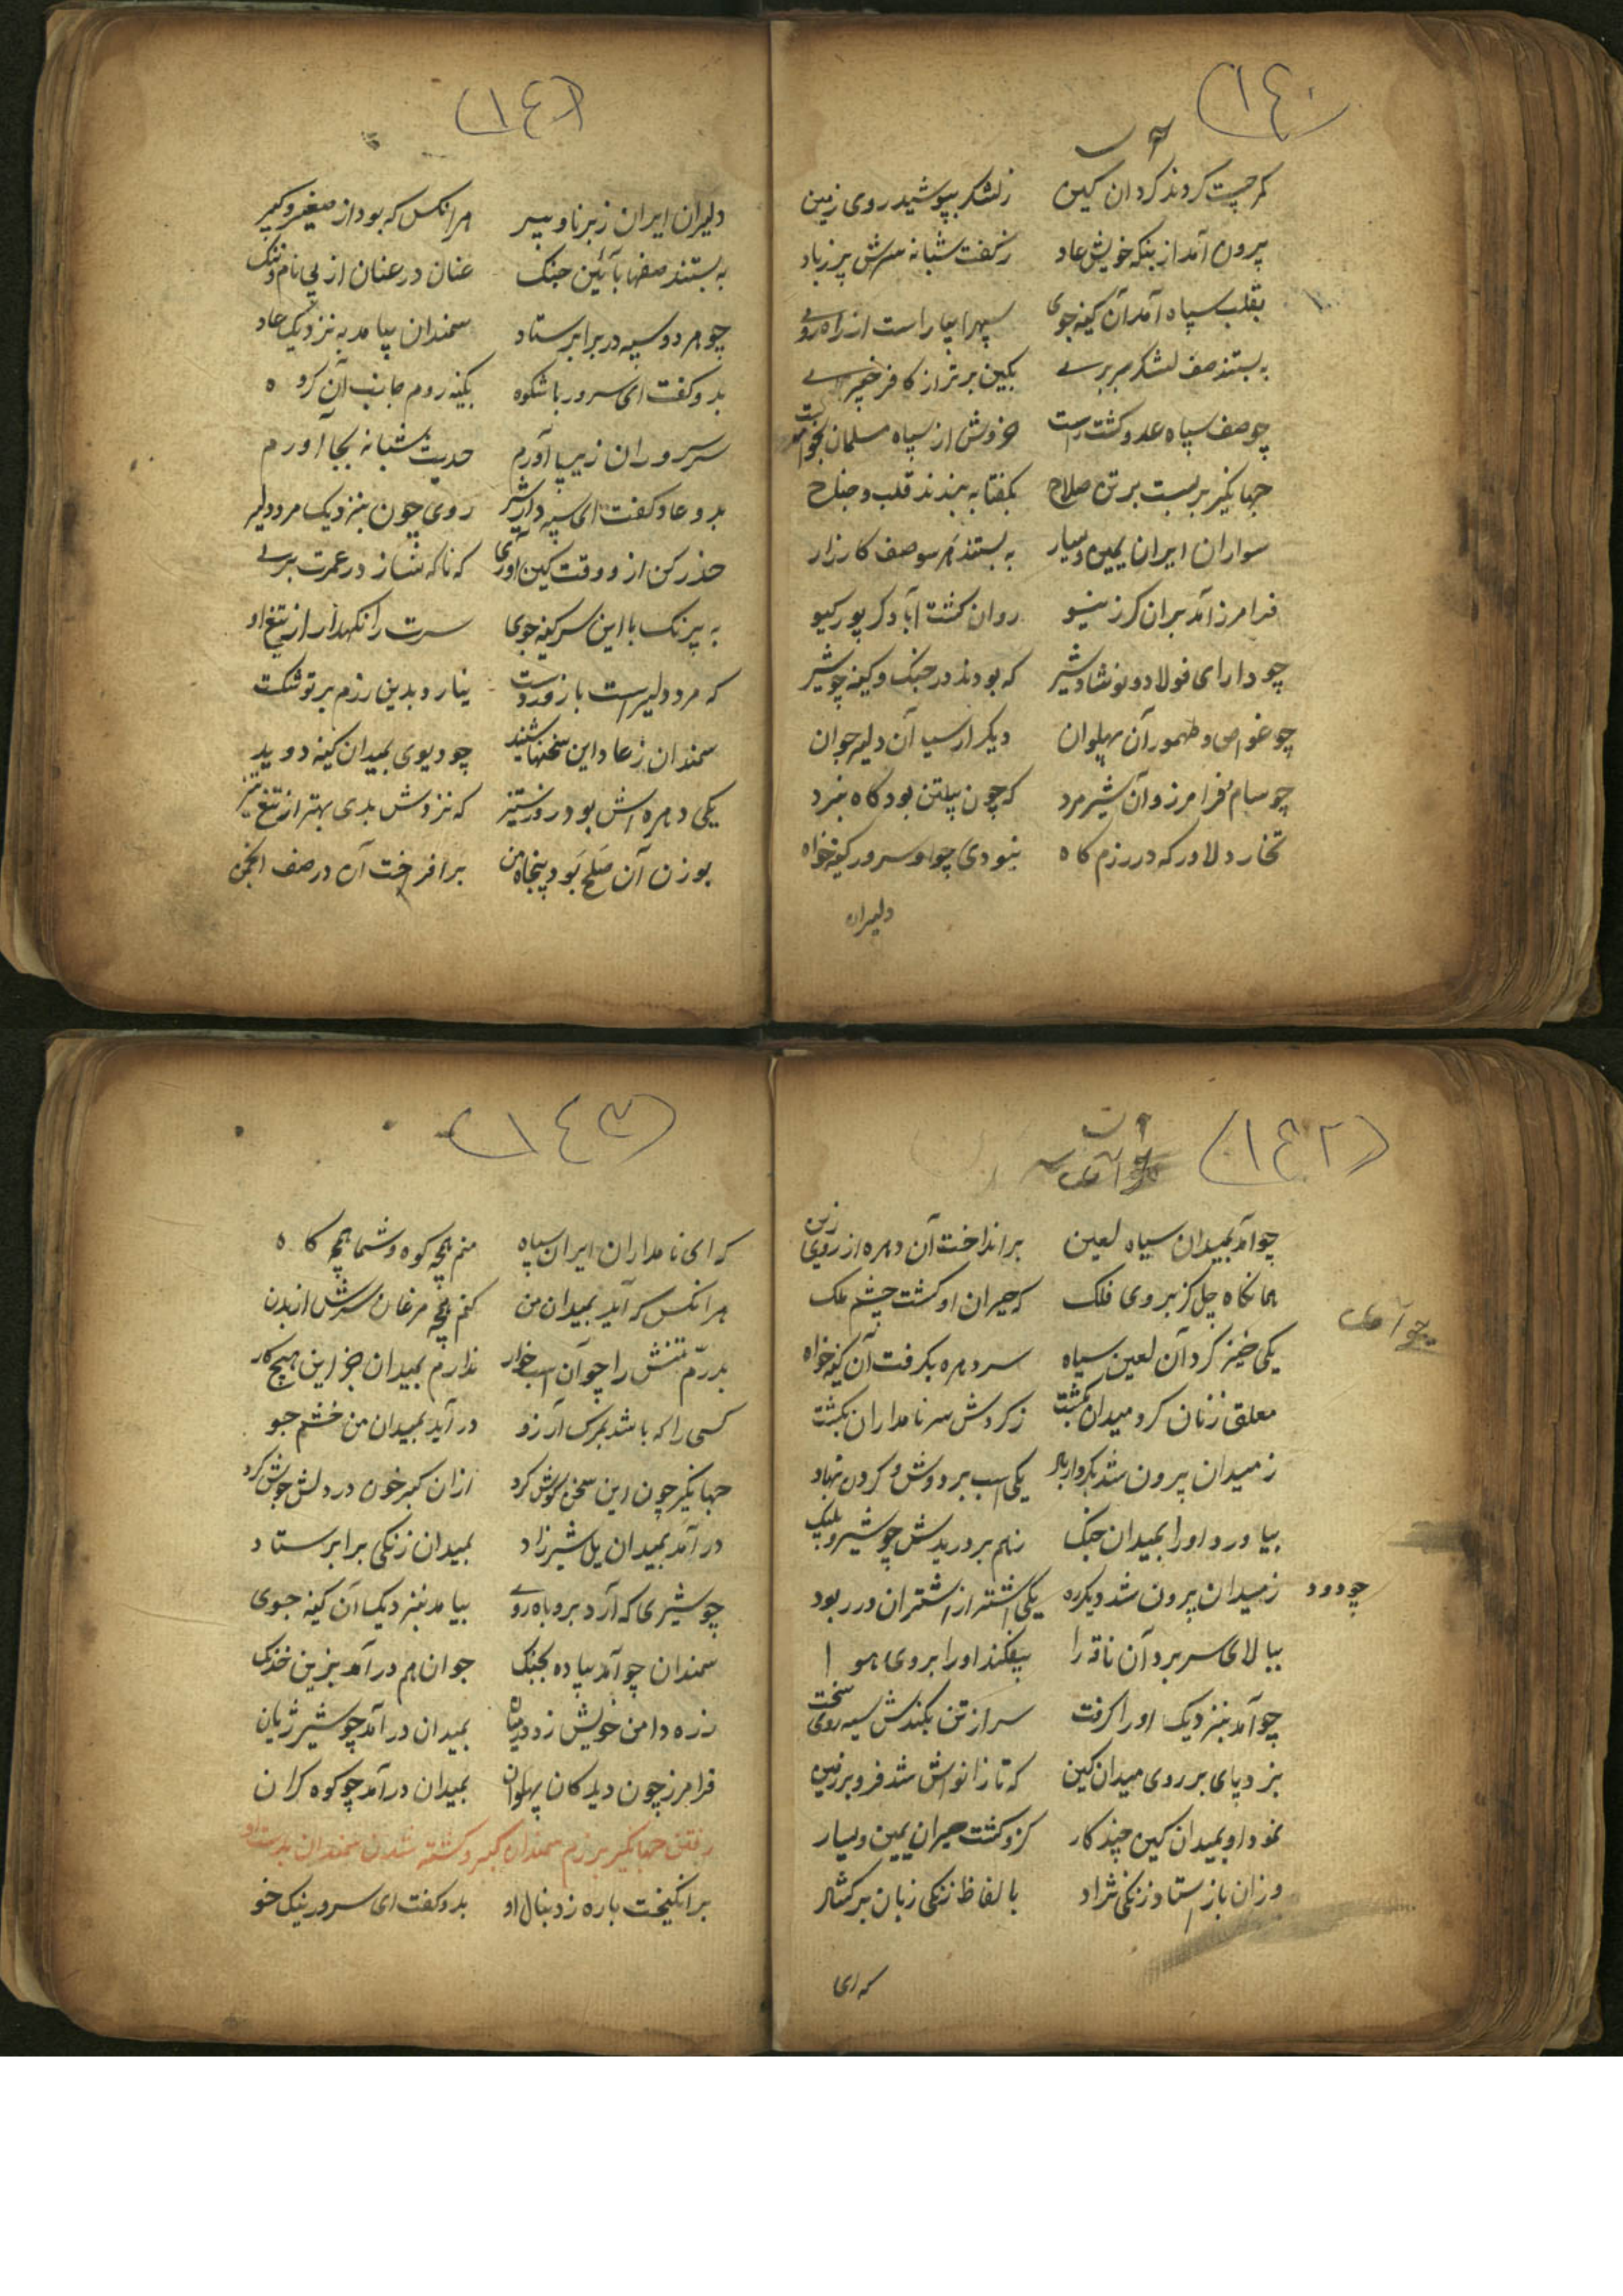 (١٤٠)
کمر چست کردند کردان کین زلشکر بپوشید روی زمین
برون آمد از بنکه خویش عاد زکفت شبانه سرش پر زباد
بقلب سپاه آمد آن کینه جوی سپه را بیاراست از راه روی
به بستند صف لشکر بربری بکین برتر از کافر خیبری
چو صف سپاه عدو کشت راست خروش از سپاه مسلمان بخواست
جهانکیر بر بست بر تن صلاح بکفتا به بندند قلب و جناح
سواران ایران یمین و یسار به بستند هر سو صف کارزار
فرامرز آمد بران کرز نیو روان کشت آباد کر پور کیو
چو دارای فولاد و نوشاد شیر که بودند در جنک و کینه چو شیر
چو غواص و طهمور آن پهلوان دیکر ارسیا آن دلیر جوان
چو سام فرامرز و آن شیر مرد که چون پیلتن بود کاه نبرد
تخار دلاور که در رزم کاه نبودی چو او سرور کینه خواه
دلیران
(١٤١)
دلیران ایران ز برنا و پیر هر انکس که بود از صغیر و کبیر
به بستند صفها بآئین جنک عنان در عنان از پی نام و ننک
چو هر دو سپه در برابر ستاد سمندان بیامد به نزدیک عاد
بدو کفت ای سرور باشکوه بکینه روم جانب آن کروه
سر سروران زیر پا آورم حدیث شبانه بجا آورم
بدو عاد کفت ای سپه دار شیر روی چون بنزدیک مرد دلیر
حذر کن از و وقت کین آوری که ناکه نسازد ز عمرت بری
به نیرنک با این سر کینه جوی سرت را نکهدار از تیغ او
که مرد دلیر است با زور دست نیارد بدین رزم بر تو شکست
سمندان ز عاد این سخنها شنید چو دیوی بمیدان کینه دوید
یکی دهره اش بود روز ستیز که نزدش بدی بهتر از تیغ تیز
بوزن آن صلح بود پنجاه من برافراخت آن در صف انجمن
(١٤٢)
چو آمد بمیدان سیاه لعین برانداخت آن دهره از روی زین
همانکاه چل کز بروی فلک که حیران او کشت چشم ملک
چو آمد
یکی خیز کرد آن لعین سیاه سر دهره بکرفت آن کینه خواه
معلق زنان کرد میدان بکشت ز کردش سر نامداران بکشت
ز میدان برون شد بکردار باد یکی اسب بر دوش و کردن نهاد
بیاورد او را بمیدان جنک ز هم بر دریدش چو شیر و پلنک
ز میدان برون شد دیکر ره چو دود یکی اشتر از اشتران در ربود
ببالای سر برد آن ناقه را بیفکند او را بروی هوا
چو آمد بنزدیک او را کرفت سر از تن بکندش سیه روی سخت
بزد پای بر روی میدان کین که تا زانواش شد فرو بر زمین
نمود او بمیدان کین چند کار کزو کشت حیران یمین و یسار
وزان باز استاد زنکی نژاد بالفاظ زنکی زبان بر کشاد
که ای
(١٤٣)
که ای نامداران ایران سپاه منم همچه کوه و شما همچه کاه
هر انکس که آید بمیدان من کنم همچه مرغان سرش از بدن
بدرّم تنش را چو آن اسب خوار ندارم بمیدان جز این هیچ کار
کسی را که باشد بمرک آرزو در آید بمیدان من خشم جو
جهانکیر چون این سخن کوش کرد ازان کبر خون در دلش جوش کرد
در آمد بمیدان یل شیرزاد بمیدان زنکی برابر ستاد
چو شیری که آرد بروباه روی بیامد بنزدیک آن کینه جوی
سمندان چو آمد پیاده بجنک جوان هم در آمد بزین خدنک
زره دامن خویش زد در میان بمیدان در آمد چو شیر ژیان
فرامرز چون دید کان پهلوان بمیدان در آمد چو کوه کران
رفتن جهانکیر برزم سمندان کبر و کشته شدن سمندان بدست او
برانکیخت باره ز دنبال او بدو کفت ای سرور نیک خو